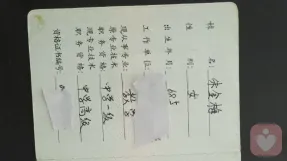 姓名：朱金梅
性别：女
出生年月：685
工作单位：
现从事专业：教学
原专业技术
职务资格：中学一级
现专业技术
职务资格：中学高级
资格证书编号：